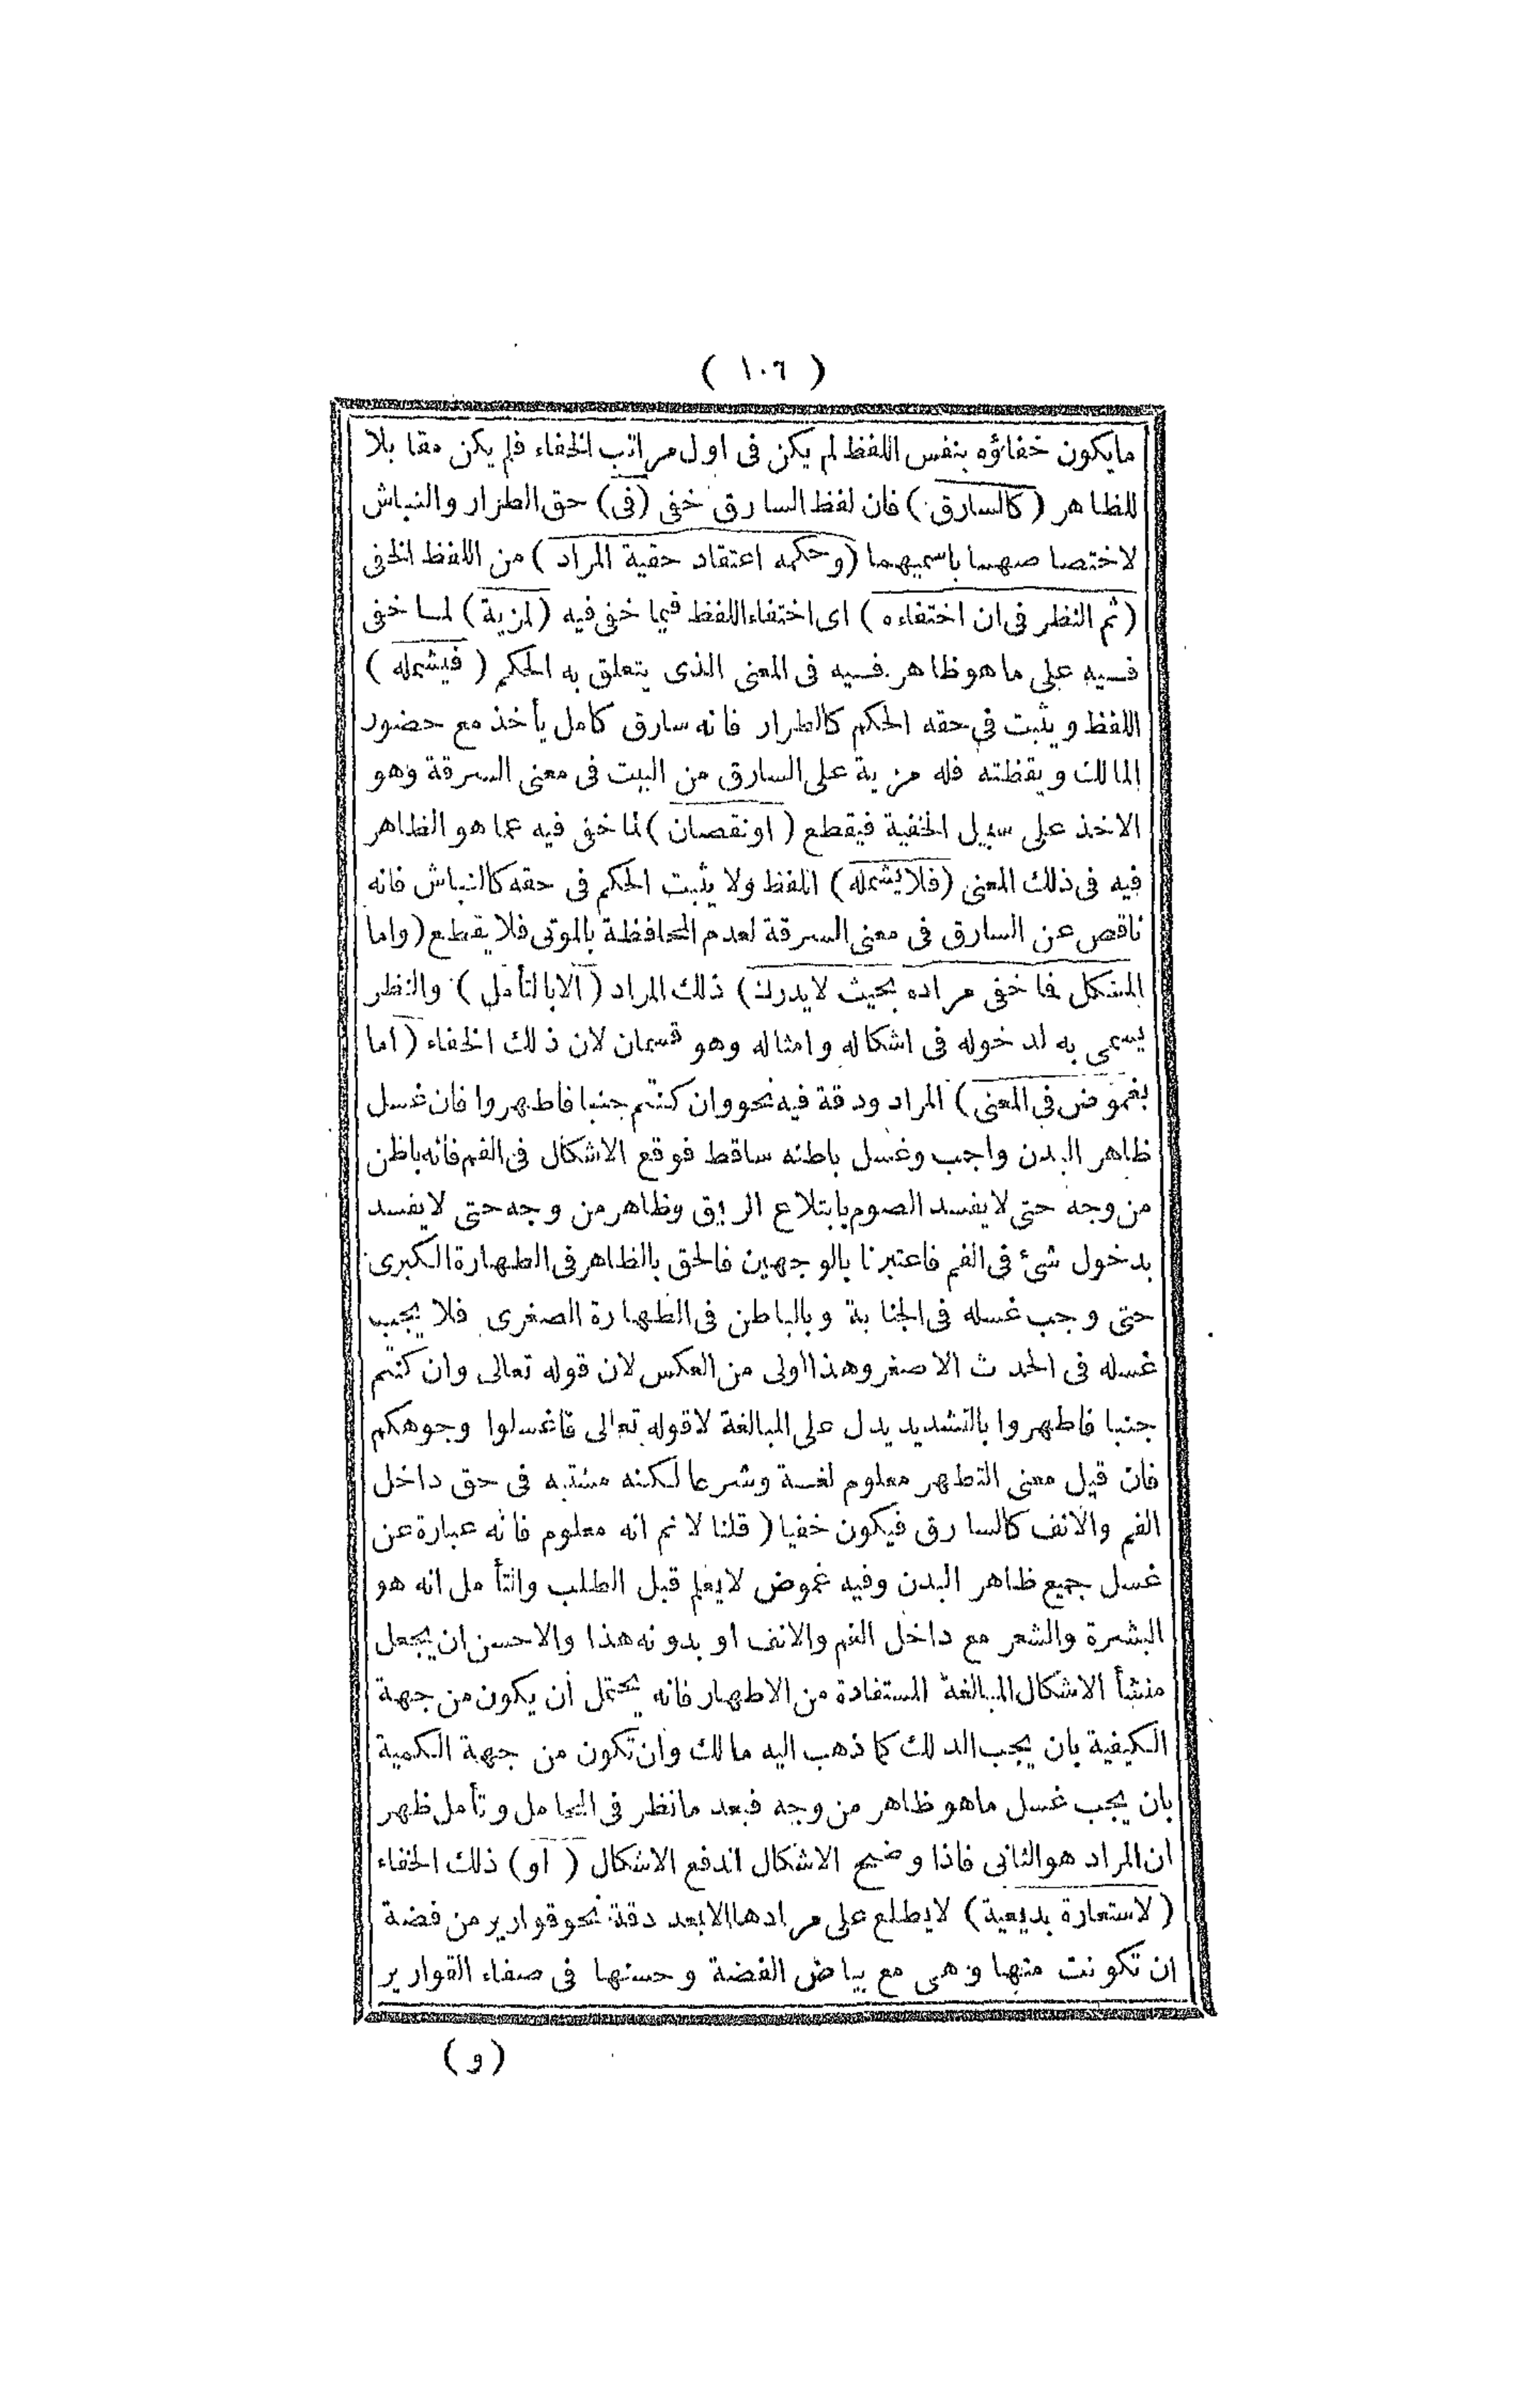 ( ١٠٦ )
مايكون خفاؤه بنفس اللفظ لم يكن فى اول مراتب الخفاء فلم يكن مقا بلا
للظاهر ( كالسارق ) فان لفظ السارق خفى (فى) حق الطرار والنباش
لاختصا صهما باسميهما (وحكمه اعتقاد حقية المراد ) من اللفظ الخفى
(ثم النظر فى ان اختفاءه ) اى اختفاء اللفظ فيما خفى فيه (لمزية) لما خفى
فيه على ما هو ظاهر فيه فى المعنى الذى يتعلق به الحكم ( فيشمله )
اللفظ و يثبت فى حقه الحكم كالطرار فانه سارق كامل يأخذ مع حضور
المالك و يقظته فله مزية على السارق من البيت فى معنى السرقة وهو
الاخذ على سبيل الخفية فيقطع ( اونقصان ) لما خفى فيه عما هو الظاهر
فيه فى ذلك المعنى (فلايشمله) اللفظ ولا يثبت الحكم فى حقه كالنباش فانه
ناقص عن السارق فى معنى السرقة لعدم المحافظة بالموتى فلا يقطع (واما
المشكل فما خفى مراده بحيث لايدرك) ذلك المراد ( الابالتأمل ) والنظر
يسمى به لد خوله فى اشكاله و امثاله وهو قسمان لان ذلك الخفاء ( اما
بغموض فى المعنى ) المراد ودقة فيه نحو وان كنتم جنبا فاطهروا فان غسل
ظاهر البدن واجب وغسل باطنه ساقط فوقع الاشكال فى الفم فانه باطن
من وجه حتى لايفسد الصوم بابتلاع الريق وظاهر من وجه حتى لايفسد
بدخول شئ فى الفم فاعتبرنا بالوجهين فالحق بالظاهر فى الطهارة الكبرى
حتى وجب غسله فى الجنابة و بالباطن فى الطهارة الصغرى فلا يجب
غسله فى الحدث الاصغر وهذا اولى من العكس لان قوله تعالى وان كنتم
جنبا فاطهروا بالتشديد يدل على المبالغة لاقوله تعالى فاغسلوا وجوهكم
فان قيل معنى التطهر معلوم لغة وشرعا لكنه مشتبه فى حق داخل
الفم والانف كالسارق فيكون خفيا ( قلنا لا نم انه معلوم فانه عبارة عن
غسل جميع ظاهر البدن وفيه غموض لايعلم قبل الطلب والتأمل انه هو
البشرة والشعر مع داخل الفم والانف او بدونه هذا والاحسن ان يجعل
منشأ الاشكال المبالغة المستفادة من الاطهار فانه يحتمل أن يكون من جهة
الكيفية بان يجب الدلك كما ذهب اليه مالك وان تكون من جهة الكمية
بان يجب غسل ماهو ظاهر من وجه فبعد مانظر فى المحامل وتأمل ظهر
ان المراد هو الثانى فاذا وضح الاشكال اندفع الاشكال ( او ) ذلك الخفاء
(لاستعارة بديعية) لايطلع على مرادها الابعد دقة نحو قوارير من فضة
ان تكونت منها وهى مع بياض الفضة وحسنها فى صفاء القوارير
(و)